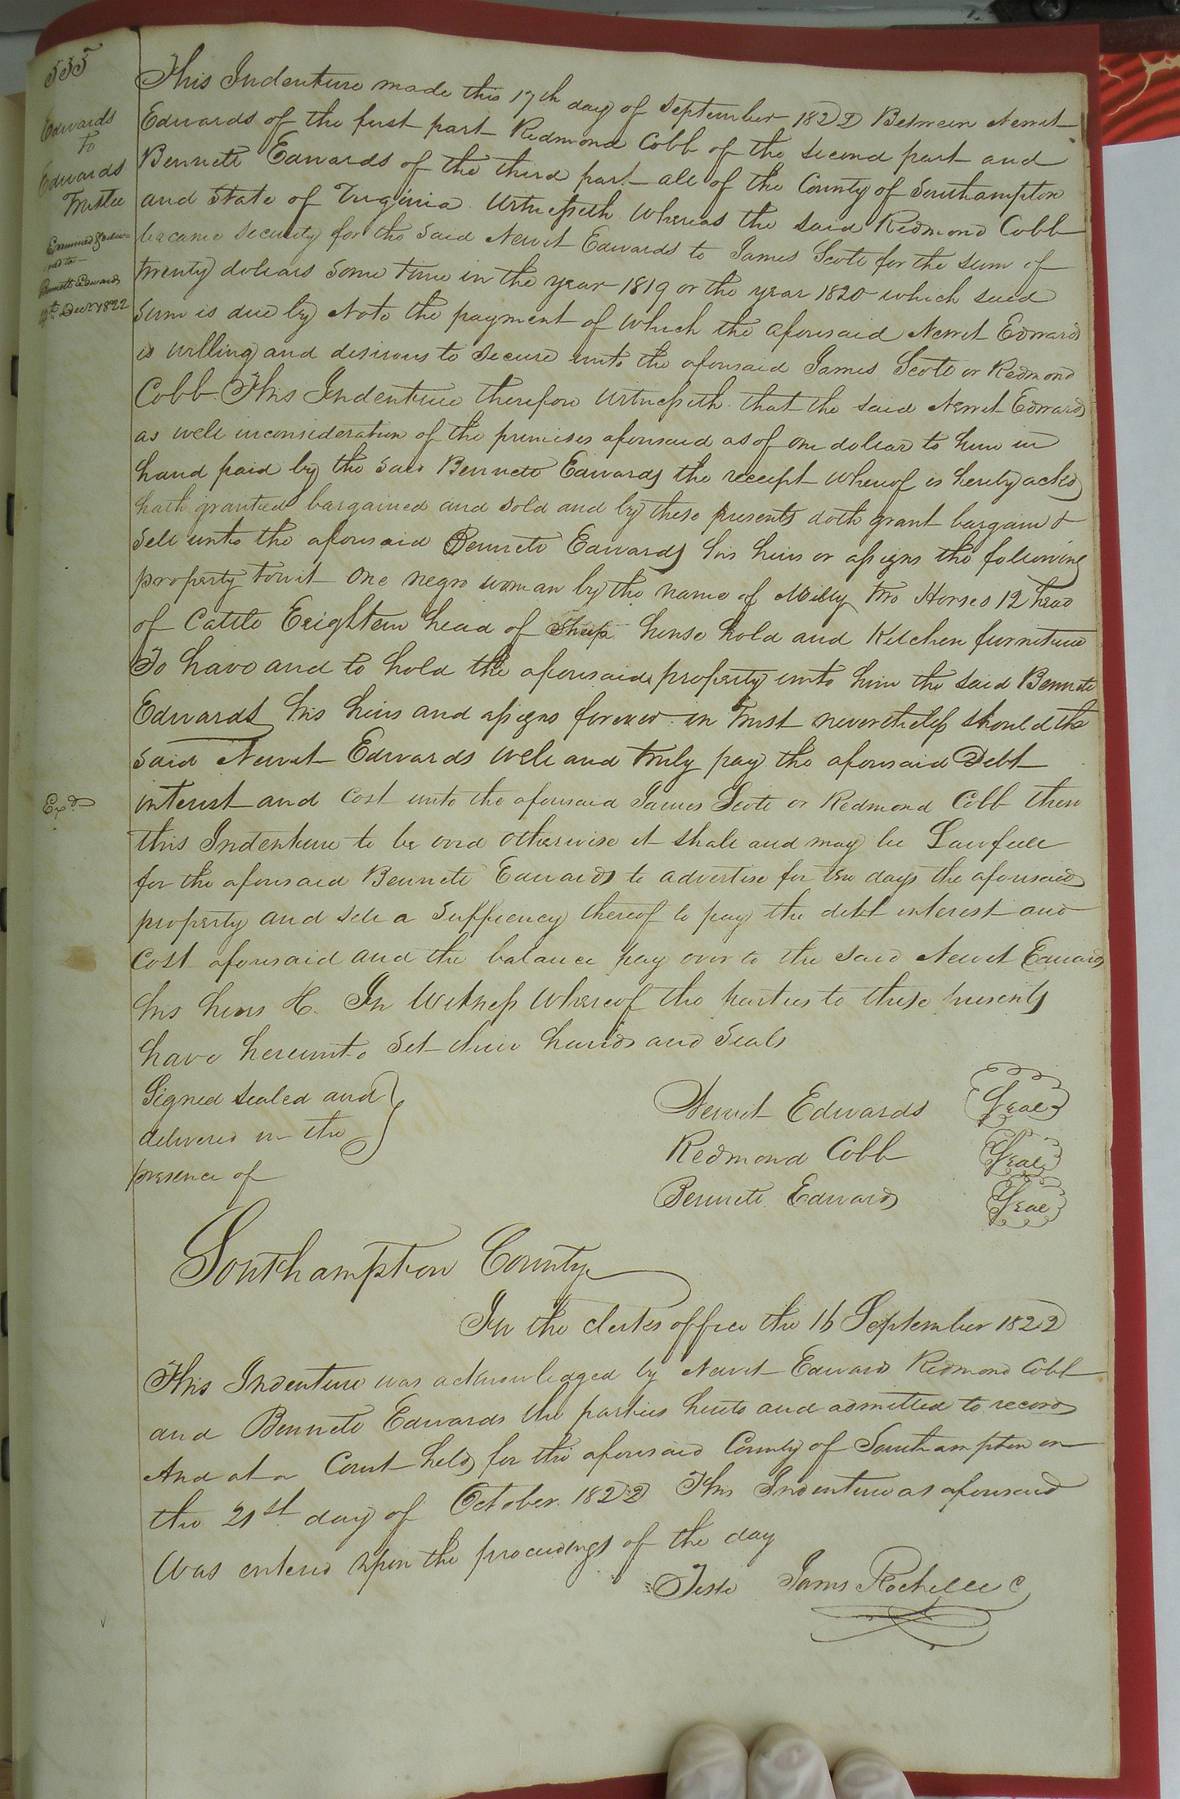 535
Edwards
To
Edwards
Trustee
Examined &
and to
Bennett Edwards
Decr 1822
This Indenture made this 17th day of September 1822 Between Newit
Edwards of the first part Redmond Cobb of the second part and
Bennett Edwards of the third part all of the County of Southampton
and State of Virginia Witnesseth Whereas the said Redmond Cobb
became security for the said Newit Edwards to James Scott for the sum of
twenty dollars some time in the year 1819 or the year 1820 which said
sum is due by Note the payment of which the aforesaid Newit Edwards
is willing and desirous to secure unto the aforesaid James Scott or Redmond
Cobb This Indenture therefore Witnesseth that the said Newit Edwards
as well inconsideration of the premises aforesaid as of one dollar to him in
hand paid by the said Bennett Edwards the receipt whereof is hereby ackd
hath granted bargained and sold and by these presents doth grant bargain &
sell unto the aforesaid Bennett Edwards his heirs or assigns the following
property towit One negro woman by the name of Milly two Horses 12 head
of Cattle Eeighteen head of Sheep house hold and Kitchen furniture
To have and to hold the aforesaid property unto him the said Bennett
Edwards his heirs and assigns forever in trust nevertheless should the
said Newit Edwards well and truly pay the aforesaid Debt
Exd
interest and cost unto the aforesaid James Scott or Redmond Cobb then
this Indenture to be void otherwise it shall and may be Lawfull
for the aforesaid Bennett Edwards to advertise for ten days the aforesaid
property and sell a suffiency thereof to pay the debt interest and
cost aforesaid and the balance pay over to the said Newit Edwards
his heirs &c. In Witness Whereof the parties to these presents
have hereunto set their hands and seals
Signed sealed and
delivered in the
presence of
Newit Edwards Seal
Redmond Cobb Seal
Bennett Edwards Seal
Southampton County
In the clerks office the 16 September 1822
This Indenture was acknowledged by Newit Edwards Redmond Cobb
and Bennett Edwards the parties hereto and admitted to record
And at a Court held for the aforesaid County of Southampton on
the 21st day of October 1822 This Indenture as aforesaid
Was entered upon the proceedings of the day
Teste James Rochelle C